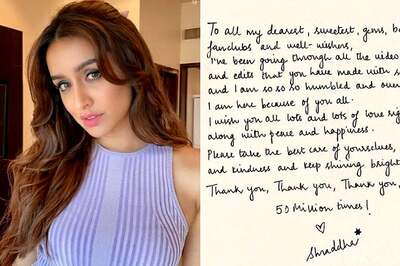 To all my dearest, sweetest, gems, b
fanclubs and well-wishers,
I've been going through all the video
and edits that you have made with s
and I am so so so humbled and over
I am here because of you all.
I wish you all lots and lots of love rig
along with peace and happiness.
Please take the best care of yourselves,
and kindness and keep shining bright
Thank you, Thank you, Thank you,
50 Million times!
Shraddha